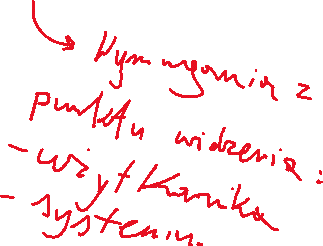 Wymagania z
punktu widzenia:
- użytkownika
- systemu.